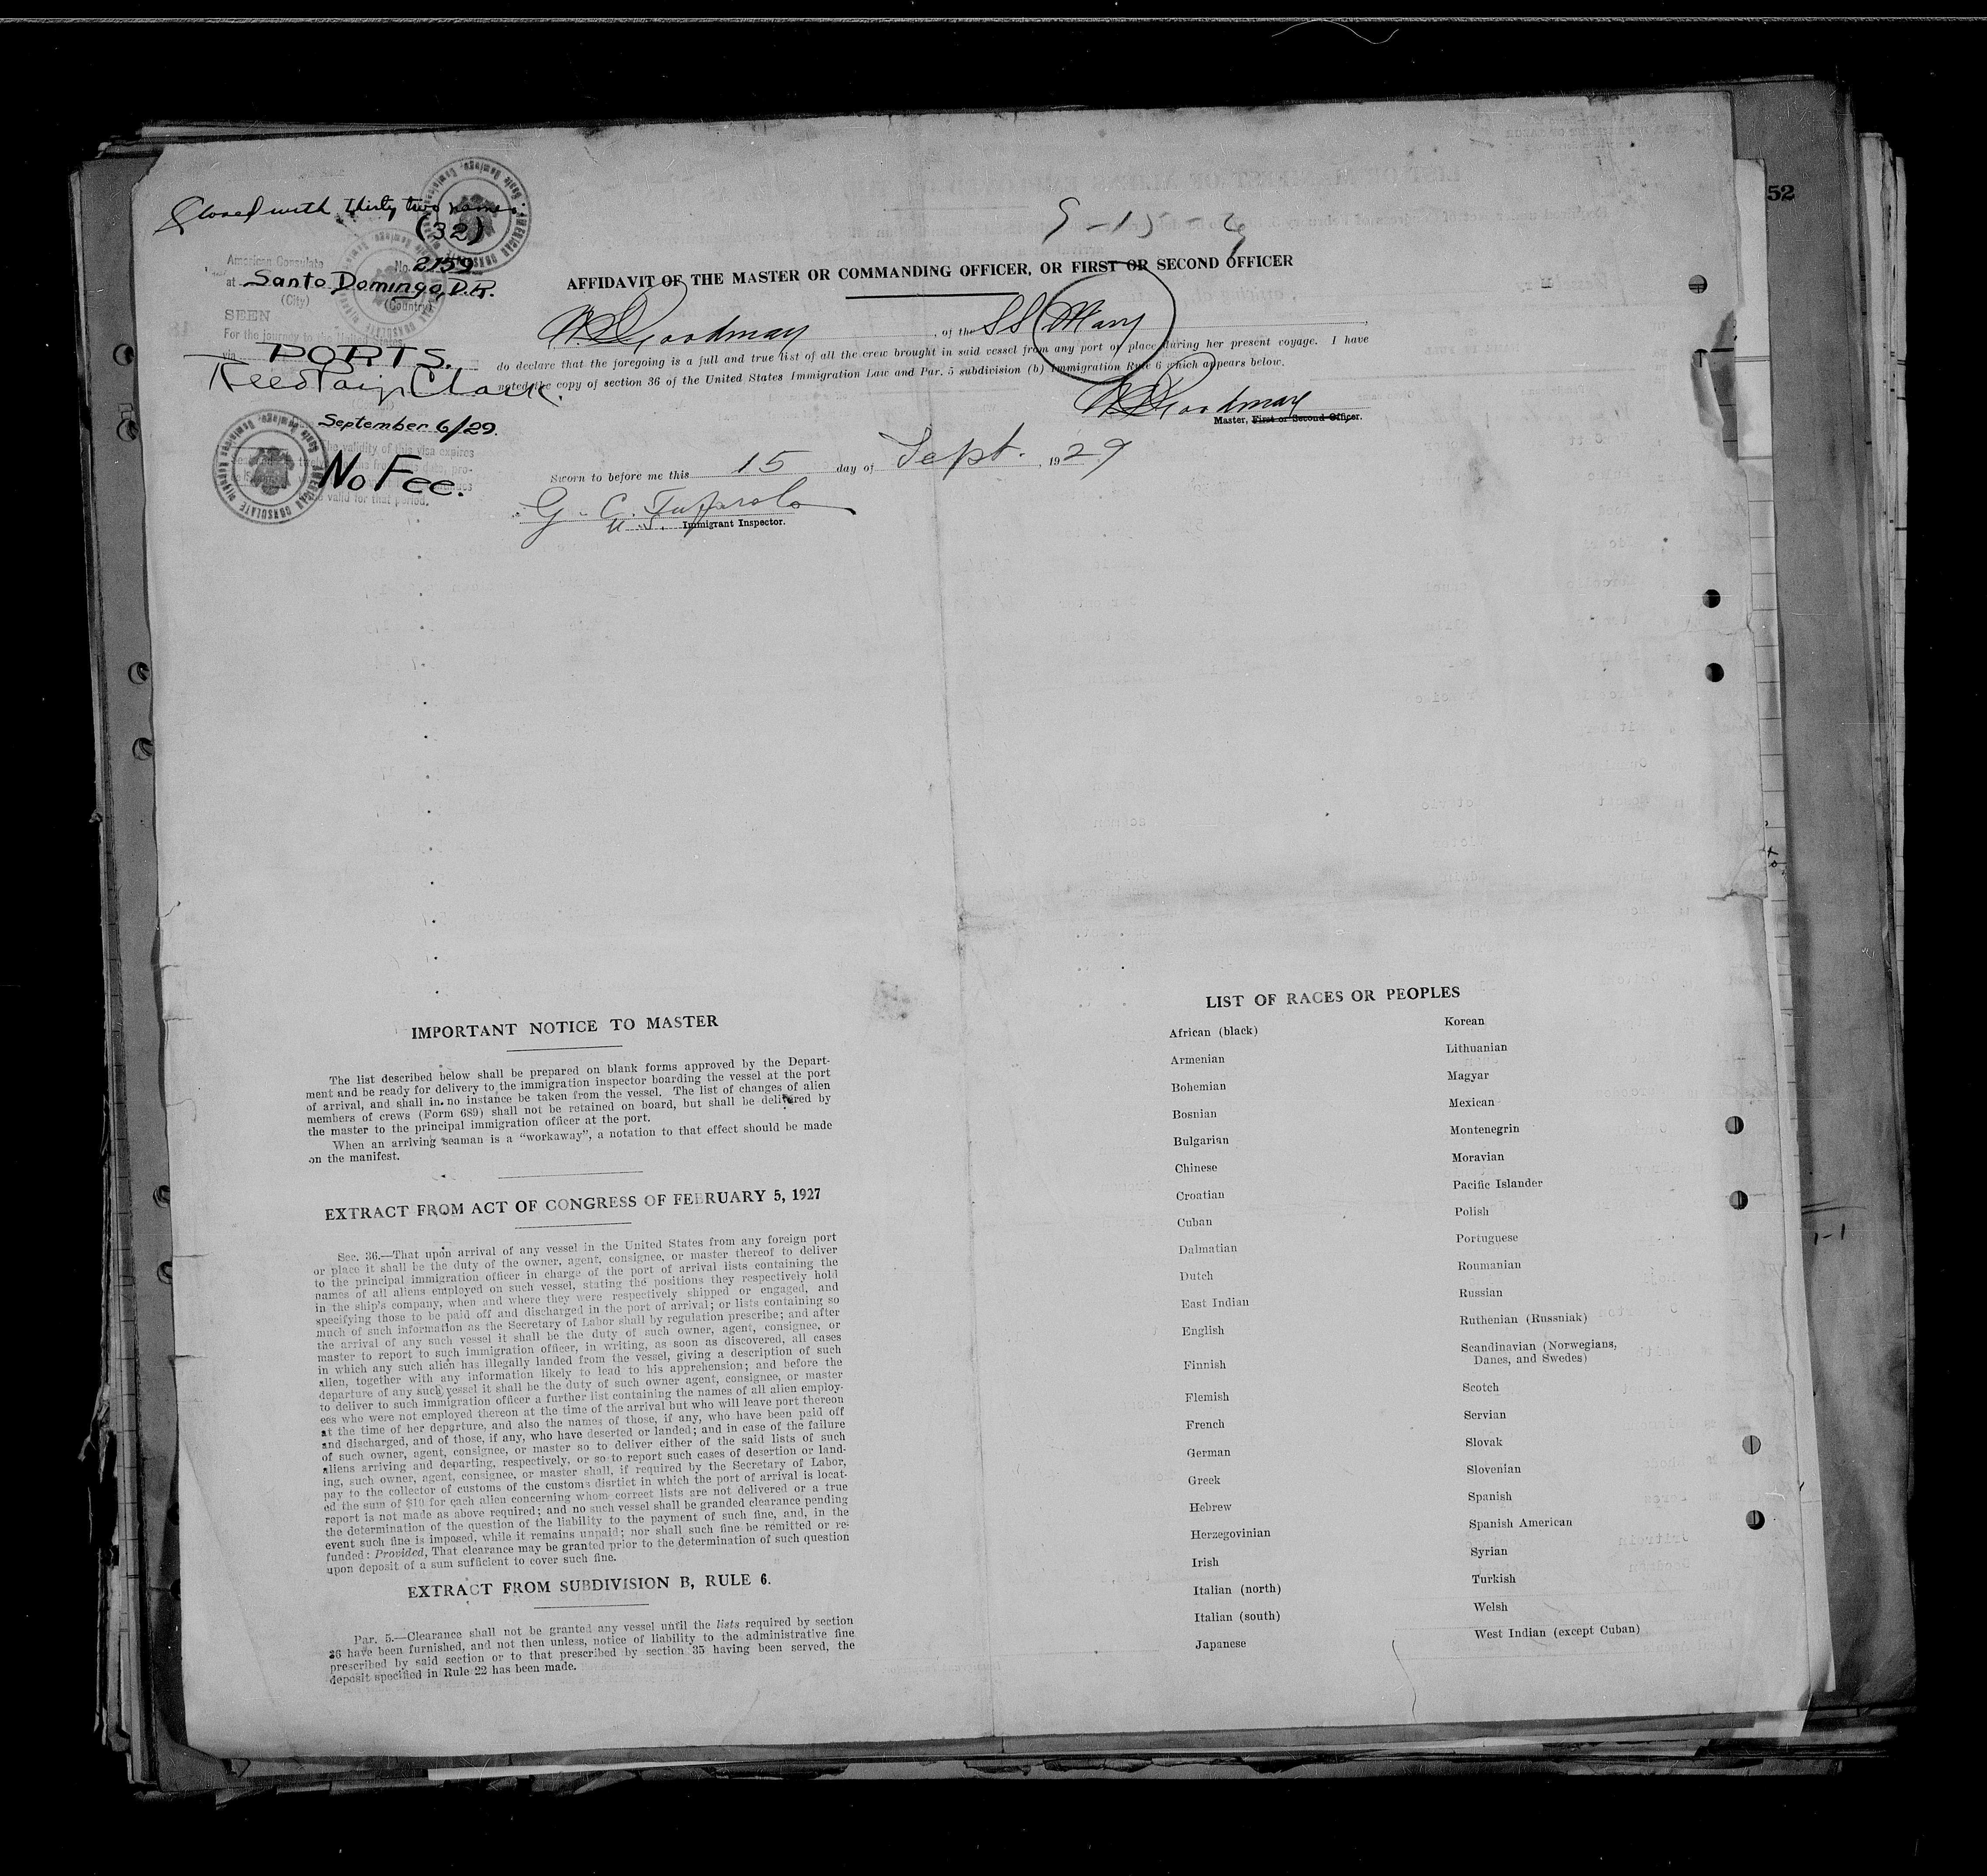 Closed with thirty two names
(32)
American Consulate No. 2159
at Santo Domingo, D.R.
(City) (Country)
SEEN
For the journey to the United States
via PORTS.
Reed Paige Clark.
September 6/29.
The validity of this visa expires
No Fee.
valid for that period.
AMERICAN CONSULATE
52
9-15-29
AFFIDAVIT OF THE MASTER OR COMMANDING OFFICER, OR FIRST OR SECOND OFFICER
Goodman, of the SS Mary,
do declare that the foregoing is a full and true list of all the crew brought in said vessel from any port or place during her present voyage. I have
noted the copy of section 36 of the United States Immigration Law and Par. 5 subdivision (b) Immigration Rule 6 which appears below.
Goodman
Master, First or Second Officer.
Sworn to before me this 15 day of Sept., 1929
G. C.
U.S. Immigrant Inspector.
IMPORTANT NOTICE TO MASTER
The list described below shall be prepared on blank forms approved by the Depart-
ment and be ready for delivery to the immigration inspector boarding the vessel at the port
of arrival, and shall in no instance be taken from the vessel. The list of changes of alien
members of crews (Form 689) shall not be retained on board, but shall be delivered by
the master to the principal immigration officer at the port.
When an arriving seaman is a "workaway", a notation to that effect should be made
on the manifest.
EXTRACT FROM ACT OF CONGRESS OF FEBRUARY 5, 1927
Sec. 36.—That upon arrival of any vessel in the United States from any foreign port
or place it shall be the duty of the owner, agent, consignee, or master thereof to deliver
to the principal immigration officer in charge of the port of arrival lists containing the
names of all aliens employed on such vessel, stating the positions they respectively hold
in the ship's company, when and where they were respectively shipped or engaged, and
specifying those to be paid off and discharged in the port of arrival; or lists containing so
much of such information as the Secretary of Labor shall by regulation prescribe; and after
the arrival of any such vessel it shall be the duty of such owner, agent, consignee, or
master to report to such immigration officer, in writing, as soon as discovered, all cases
in which any such alien has illegally landed from the vessel, giving a description of such
alien, together with any information likely to lead to his apprehension; and before the
departure of any such vessel it shall be the duty of such owner agent, consignee, or master
to deliver to such immigration officer a further list containing the names of all alien employ-
ees who were not employed thereon at the time of the arrival but who will leave port thereon
at the time of her departure, and also the names of those, if any, who have been paid off
and discharged, and of those, if any, who have deserted or landed; and in case of the failure
of such owner, agent, consignee, or master so to deliver either of the said lists of such
aliens arriving and departing, respectively, or so to report such cases of desertion or land-
ing, such owner, agent, consignee, or master shall, if required by the Secretary of Labor,
pay to the collector of customs of the customs disrtict in which the port of arrival is locat-
ed the sum of $10 for each alien concerning whom correct lists are not delivered or a true
report is not made as above required; and no such vessel shall be granded clearance pending
the determination of the question of the liability to the payment of such fine, and, in the
event such fine is imposed, while it remains unpaid; nor shall such fine be remitted or re-
funded: Provided, That clearance may be granted prior to the determination of such question
upon deposit of a sum sufficient to cover such fine.
EXTRACT FROM SUBDIVISION B, RULE 6.
Par. 5.—Clearance shall not be granted any vessel until the lists required by section
36 have been furnished, and not then unless, notice of liability to the administrative fine
prescribed by said section or to that prescribed by section 35 having been served, the
deposit specified in Rule 22 has been made.
LIST OF RACES OR PEOPLES
African (black)
Armenian
Bohemian
Bosnian
Bulgarian
Chinese
Croatian
Cuban
Dalmatian
Dutch
East Indian
English
Finnish
Flemish
French
German
Greek
Hebrew
Herzegovinian
Irish
Italian (north)
Italian (south)
Japanese
Korean
Lithuanian
Magyar
Mexican
Montenegrin
Moravian
Pacific Islander
Polish
Portuguese
Roumanian
Russian
Ruthenian (Russniak)
Scandinavian (Norwegians,
Danes, and Swedes)
Scotch
Servian
Slovak
Slovenian
Spanish
Spanish American
Syrian
Turkish
Welsh
West Indian (except Cuban)